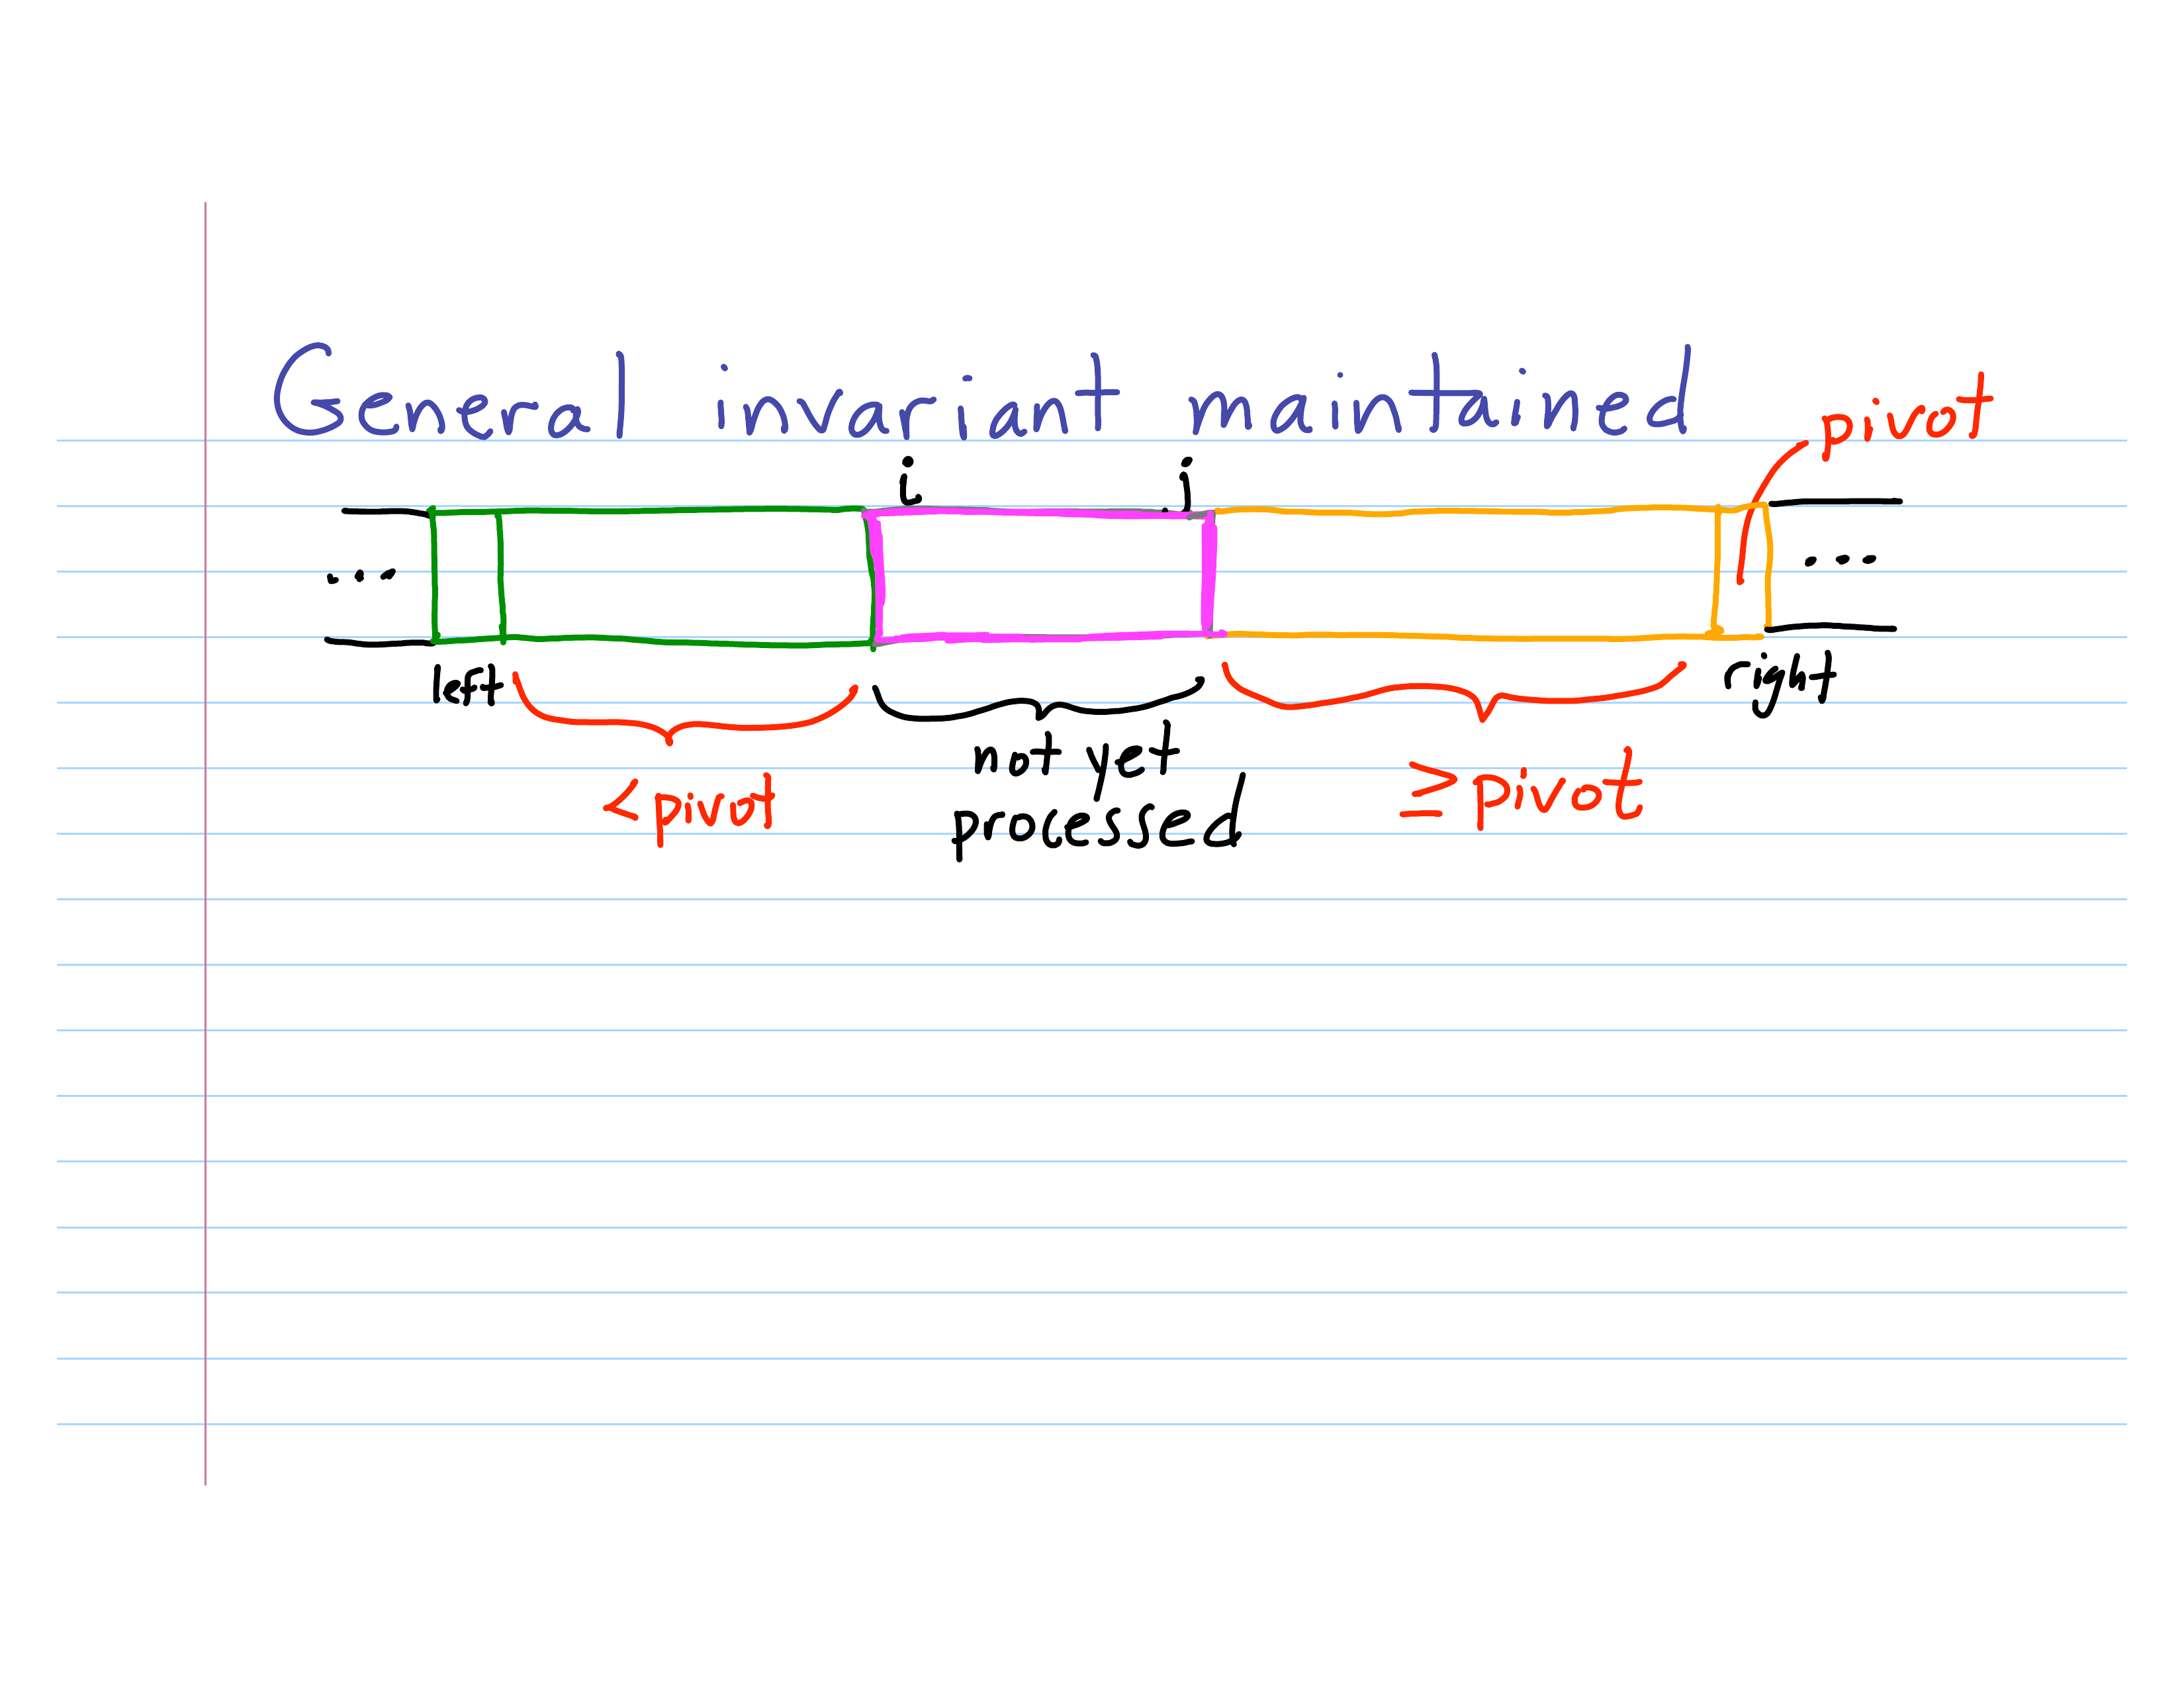 General invariant maintained
pivot
i j
... ...
left right
<pivot not yet processed ≥pivot